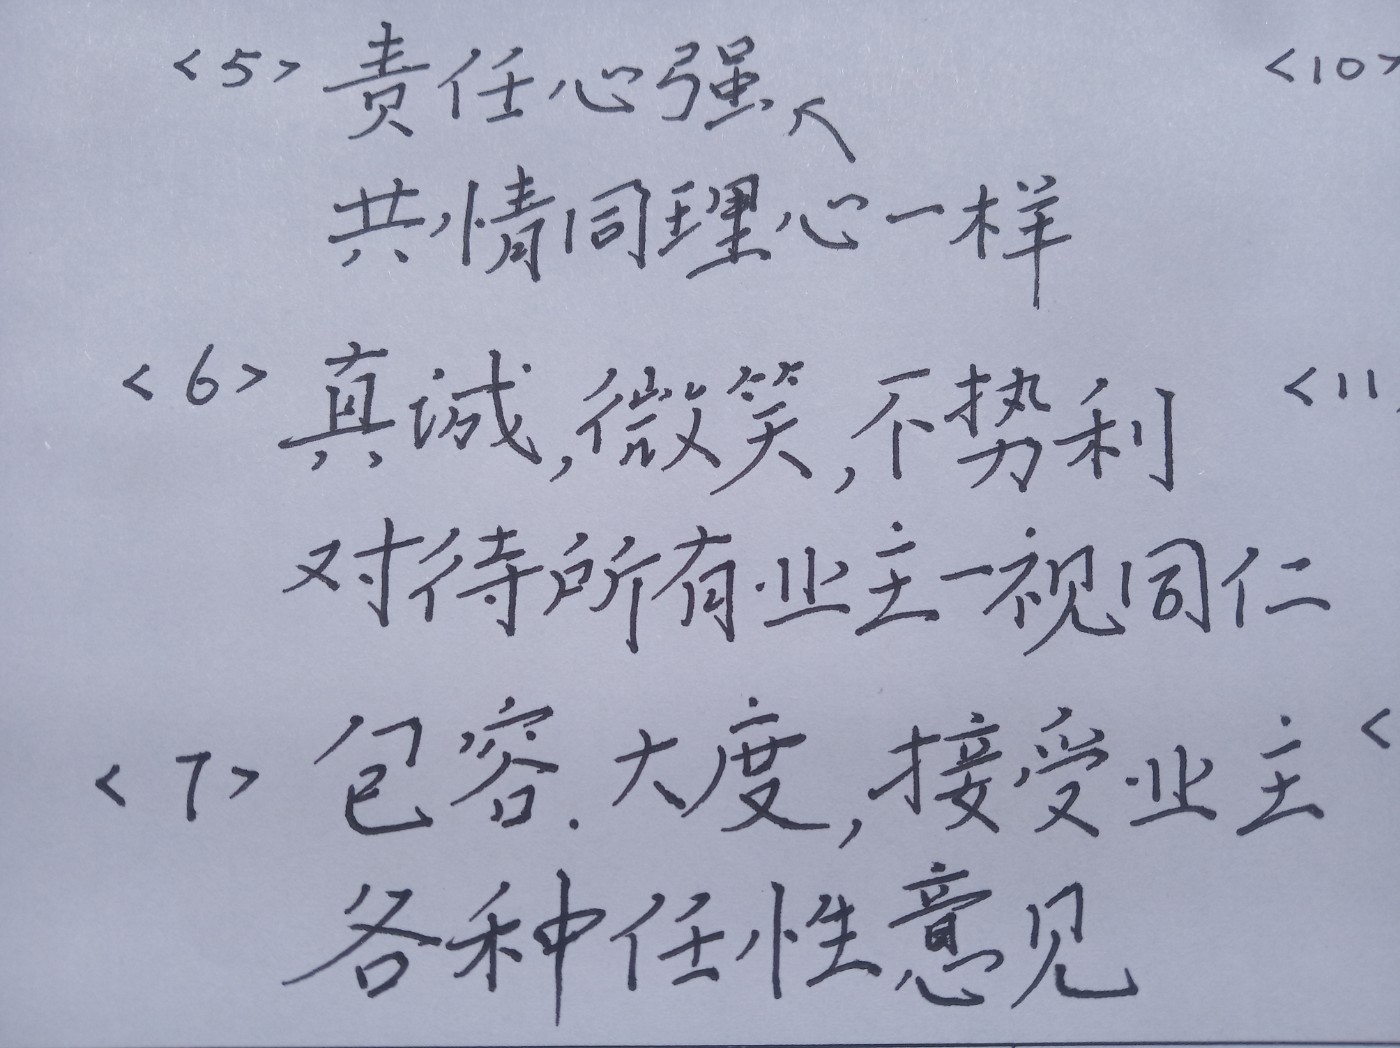 <5> 责任心强
共情同理心一样
<6> 真诚,微笑,不势利
对待所有业主一视同仁
<7> 包容.大度,接受业主
各种任性意见
<10>
<11
<